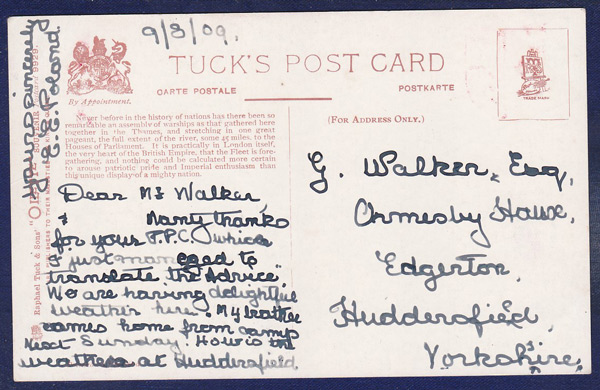 9/8/09.
TUCK'S POST CARD
CARTE POSTALE
POSTKARTE
By Appointment.
TRADE MARK
Never before in the history of nations has there been so
remarkable an assembly of warships as that gathered here
together in the Thames, and stretching in one great
pageant, the full extent of the river, some 45 miles, to the
Houses of Parliament. It is practically in London itself,
the very heart of the British Empire, that the Fleet is fore-
gathering, and nothing could be calculated more certain
to arouse patriotic pride and Imperial enthusiasm than
this unique display of a mighty nation.
(FOR ADDRESS ONLY.)
Dear Mr Walker,
Many thanks
for your P.P.C. which
I just managed to
translate "the Advice".
We are having delightful
weather here. My brother
comes home from camp
Next Sunday. How is the
weather at Huddersfield
Yours sincerely
E. E. Poland
G. Walker, Esq,
Ormesby House,
Edgerton,
Huddersfield,
Yorkshire.
Raphael Tuck & Sons' "OILETTE"